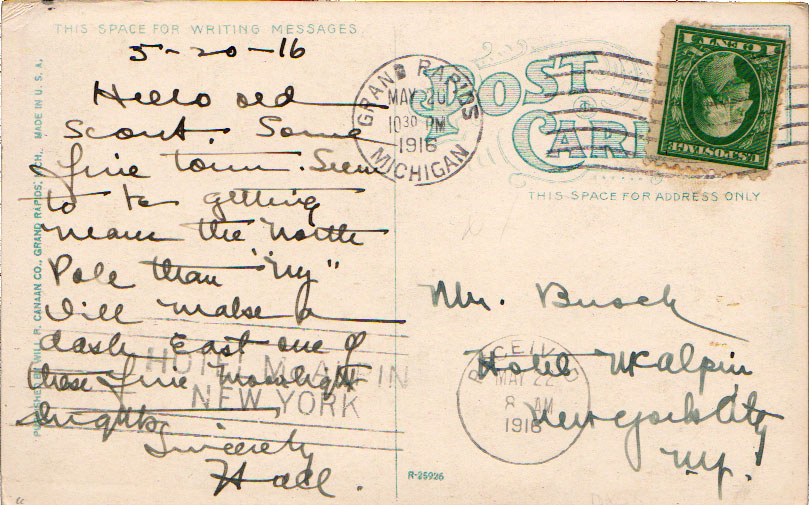 THIS SPACE FOR WRITING MESSAGES
5-20-16
Hello old
Scout. Some
fine town. Seem
to be getting
near the North
Pole than "Ny"
Will make a
dash East one of
these fine moonlight
nights
Sincerely
Hall.
PUBLISHED BY WILL P. CANAAN CO., GRAND RAPIDS, MICH. MADE IN U.S.A.
HOTEL McALPIN
NEW YORK
GRAND RAPIDS
MAY 20
1030 PM
1916
MICHIGAN
POST
CARD
U.S. POSTAGE
THIS SPACE FOR ADDRESS ONLY
Mr. Busch
Hotel McAlpin
New York City
N.Y.
RECEIVED
MAY 22
8 AM
1916
R-25926